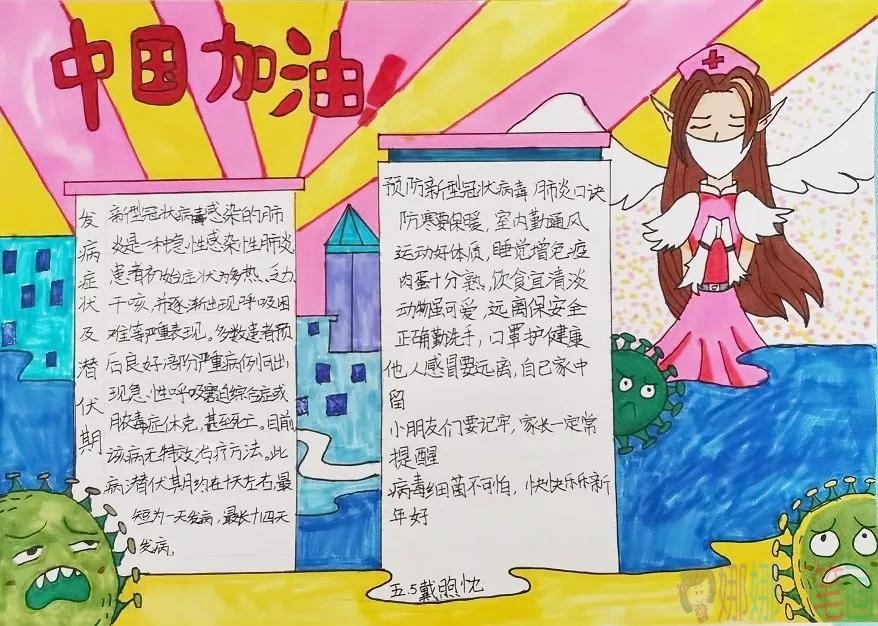 中国加油！
发病症状及潜伏期
新型冠状病毒感染的肺
炎是一种急性感染性肺炎
患者初始症状多为发热、乏力
干咳，并逐渐出现呼吸困
难等严重表现。多数患者预
后良好，部分严重病例可出
现急性呼吸窘迫综合症或
脓毒症休克，甚至死亡。目前
该病无特效治疗方法。此
病潜伏期约在十天左右，最
短为一天发病，最长十四天
发病。
预防新型冠状病毒肺炎口诀
防寒要保暖，室内勤通风
运动好体质，睡觉增免疫
肉蛋十分熟，饮食宜清淡
动物虽可爱，远离保安全
正确勤洗手，口罩护健康
他人感冒要远离，自己家中
留
小朋友们要记牢，家长一定常
提醒
病毒细菌不可怕，快快乐乐新
年好
五.5戴煦忱
娜娜 笔